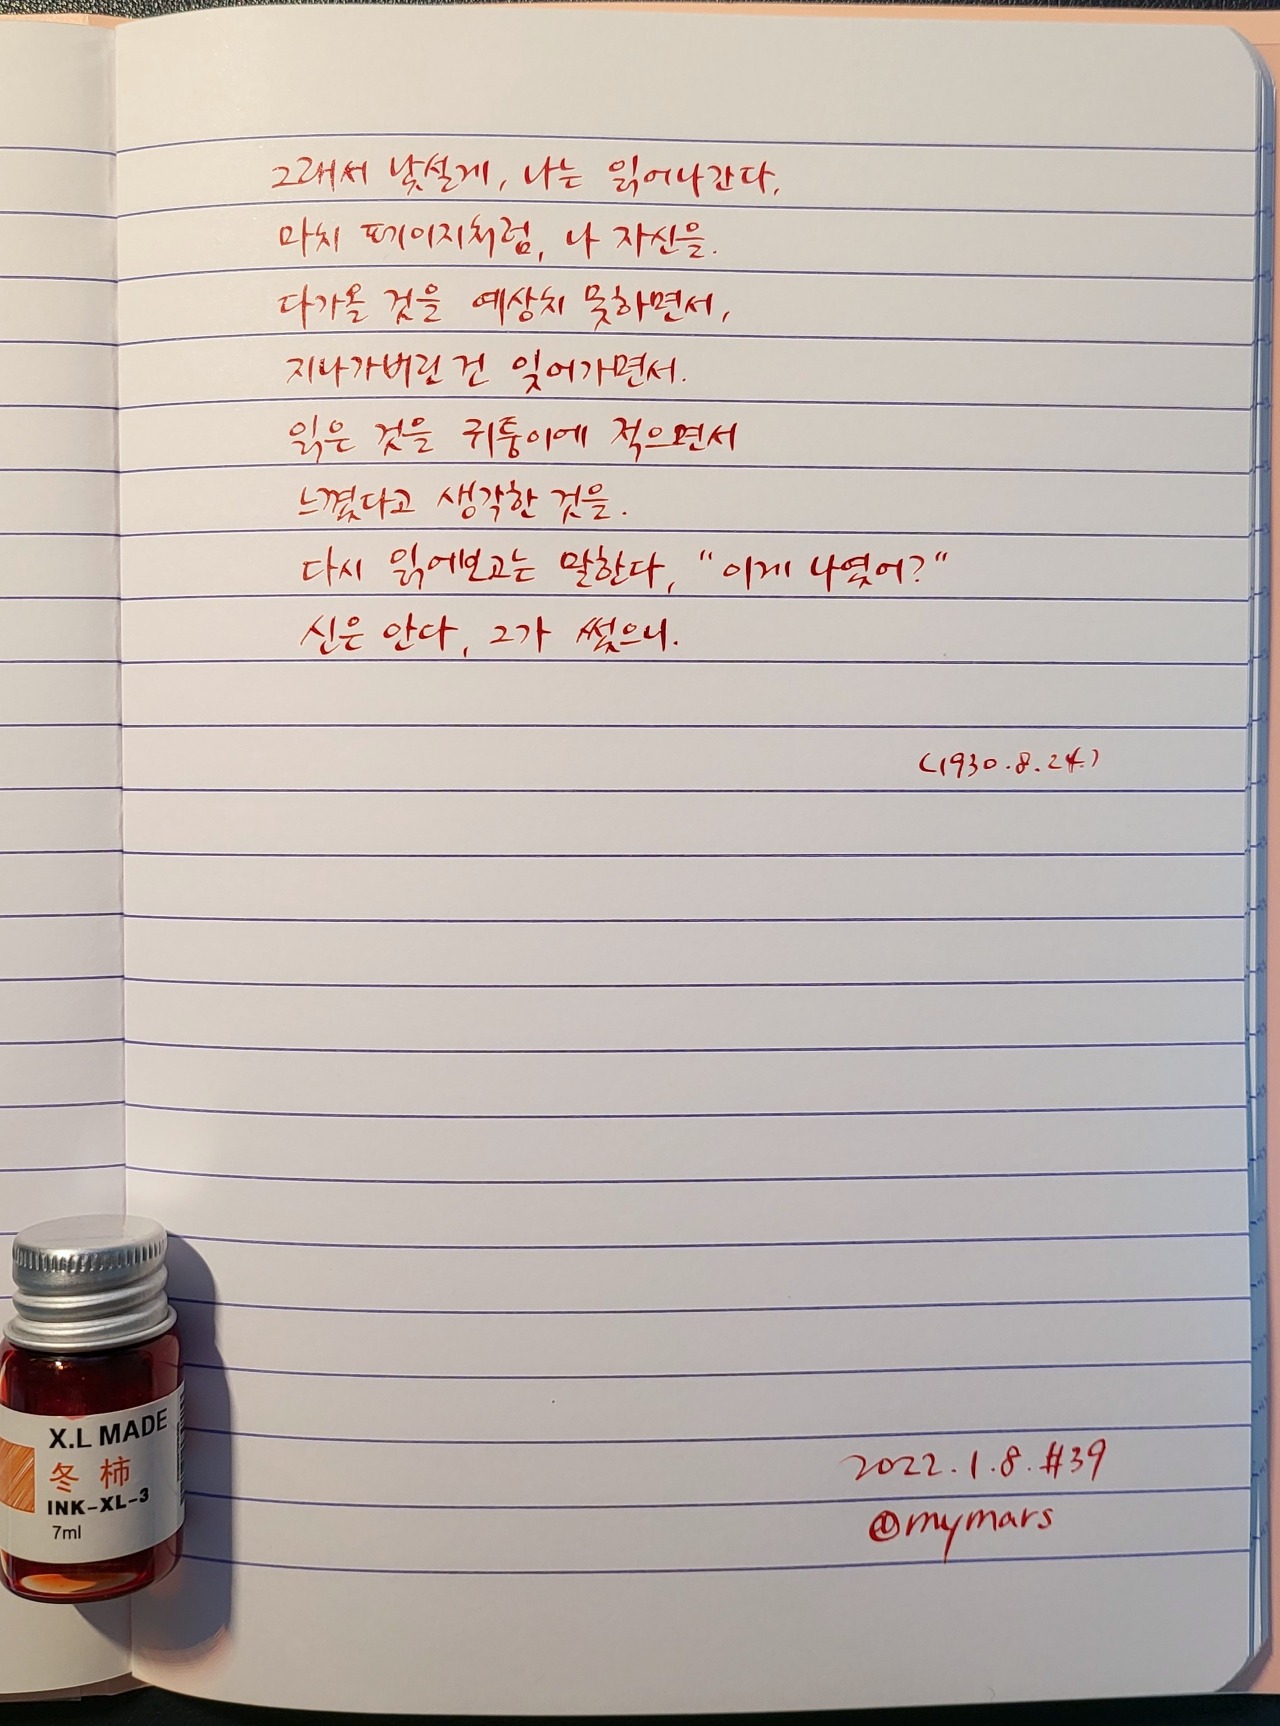 그래서 낯설게, 나는 읽어나간다,
마치 페이지처럼, 나 자신을.
다가올 것을 예상치 못하면서,
지나가버린 건 잊어가면서.
읽은 것을 귀퉁이에 적으면서
느꼈다고 생각한 것을.
다시 읽어보고는 말한다, "이게 나였어?"
신은 안다, 그가 썼으니.
(1930.8.24.)
X.L MADE
冬 柿
INK-XL-3
7ml
2022.1.8.#39
@mymars